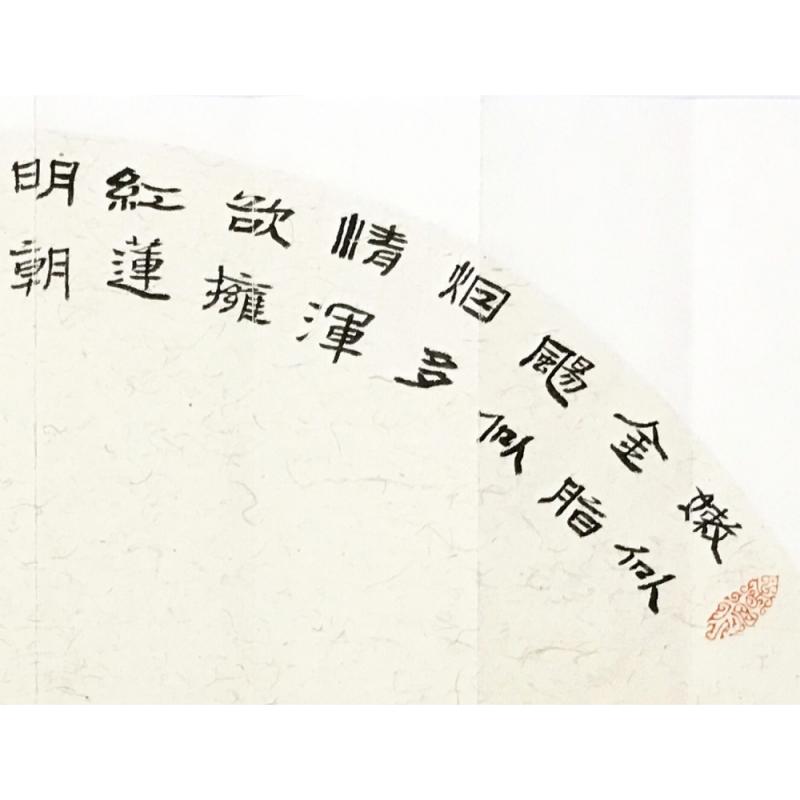 嫩似
金脂
颺似
烟多
情渾
欲擁
紅蓮
明朝